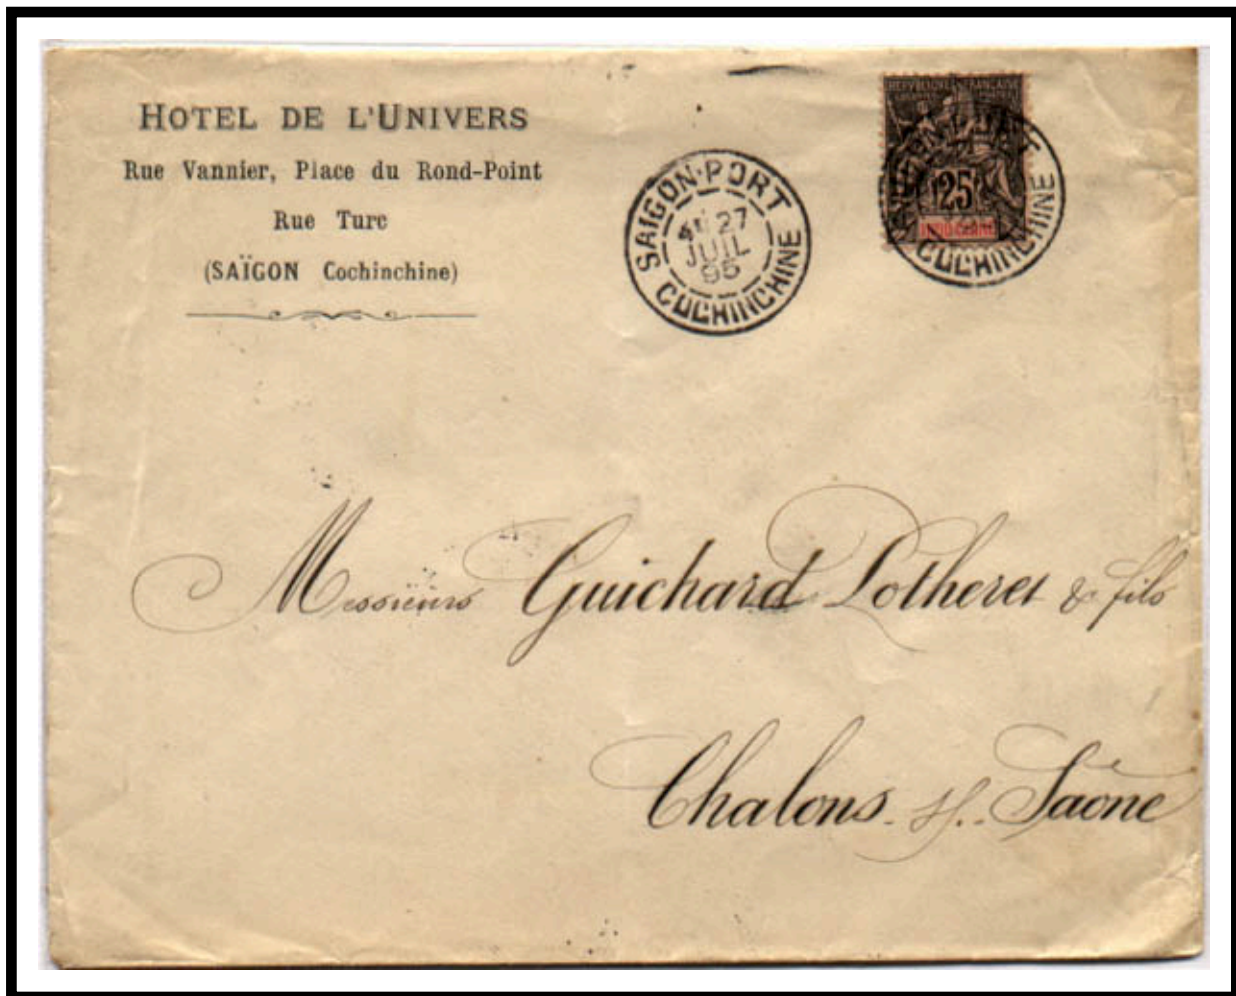 HOTEL DE L'UNIVERS
Rue Vannier, Place du Rond-Point
Rue Turc
(SAÏGON Cochinchine)
SAIGON-PORT
27
JUIL
95
COCHINCHINE
REPUBLIQUE FRANCAISE
25
INDO-CHINE
COCHINCHINE
Messieurs Guichard Lotheret & fils
Chalons s/. Saône